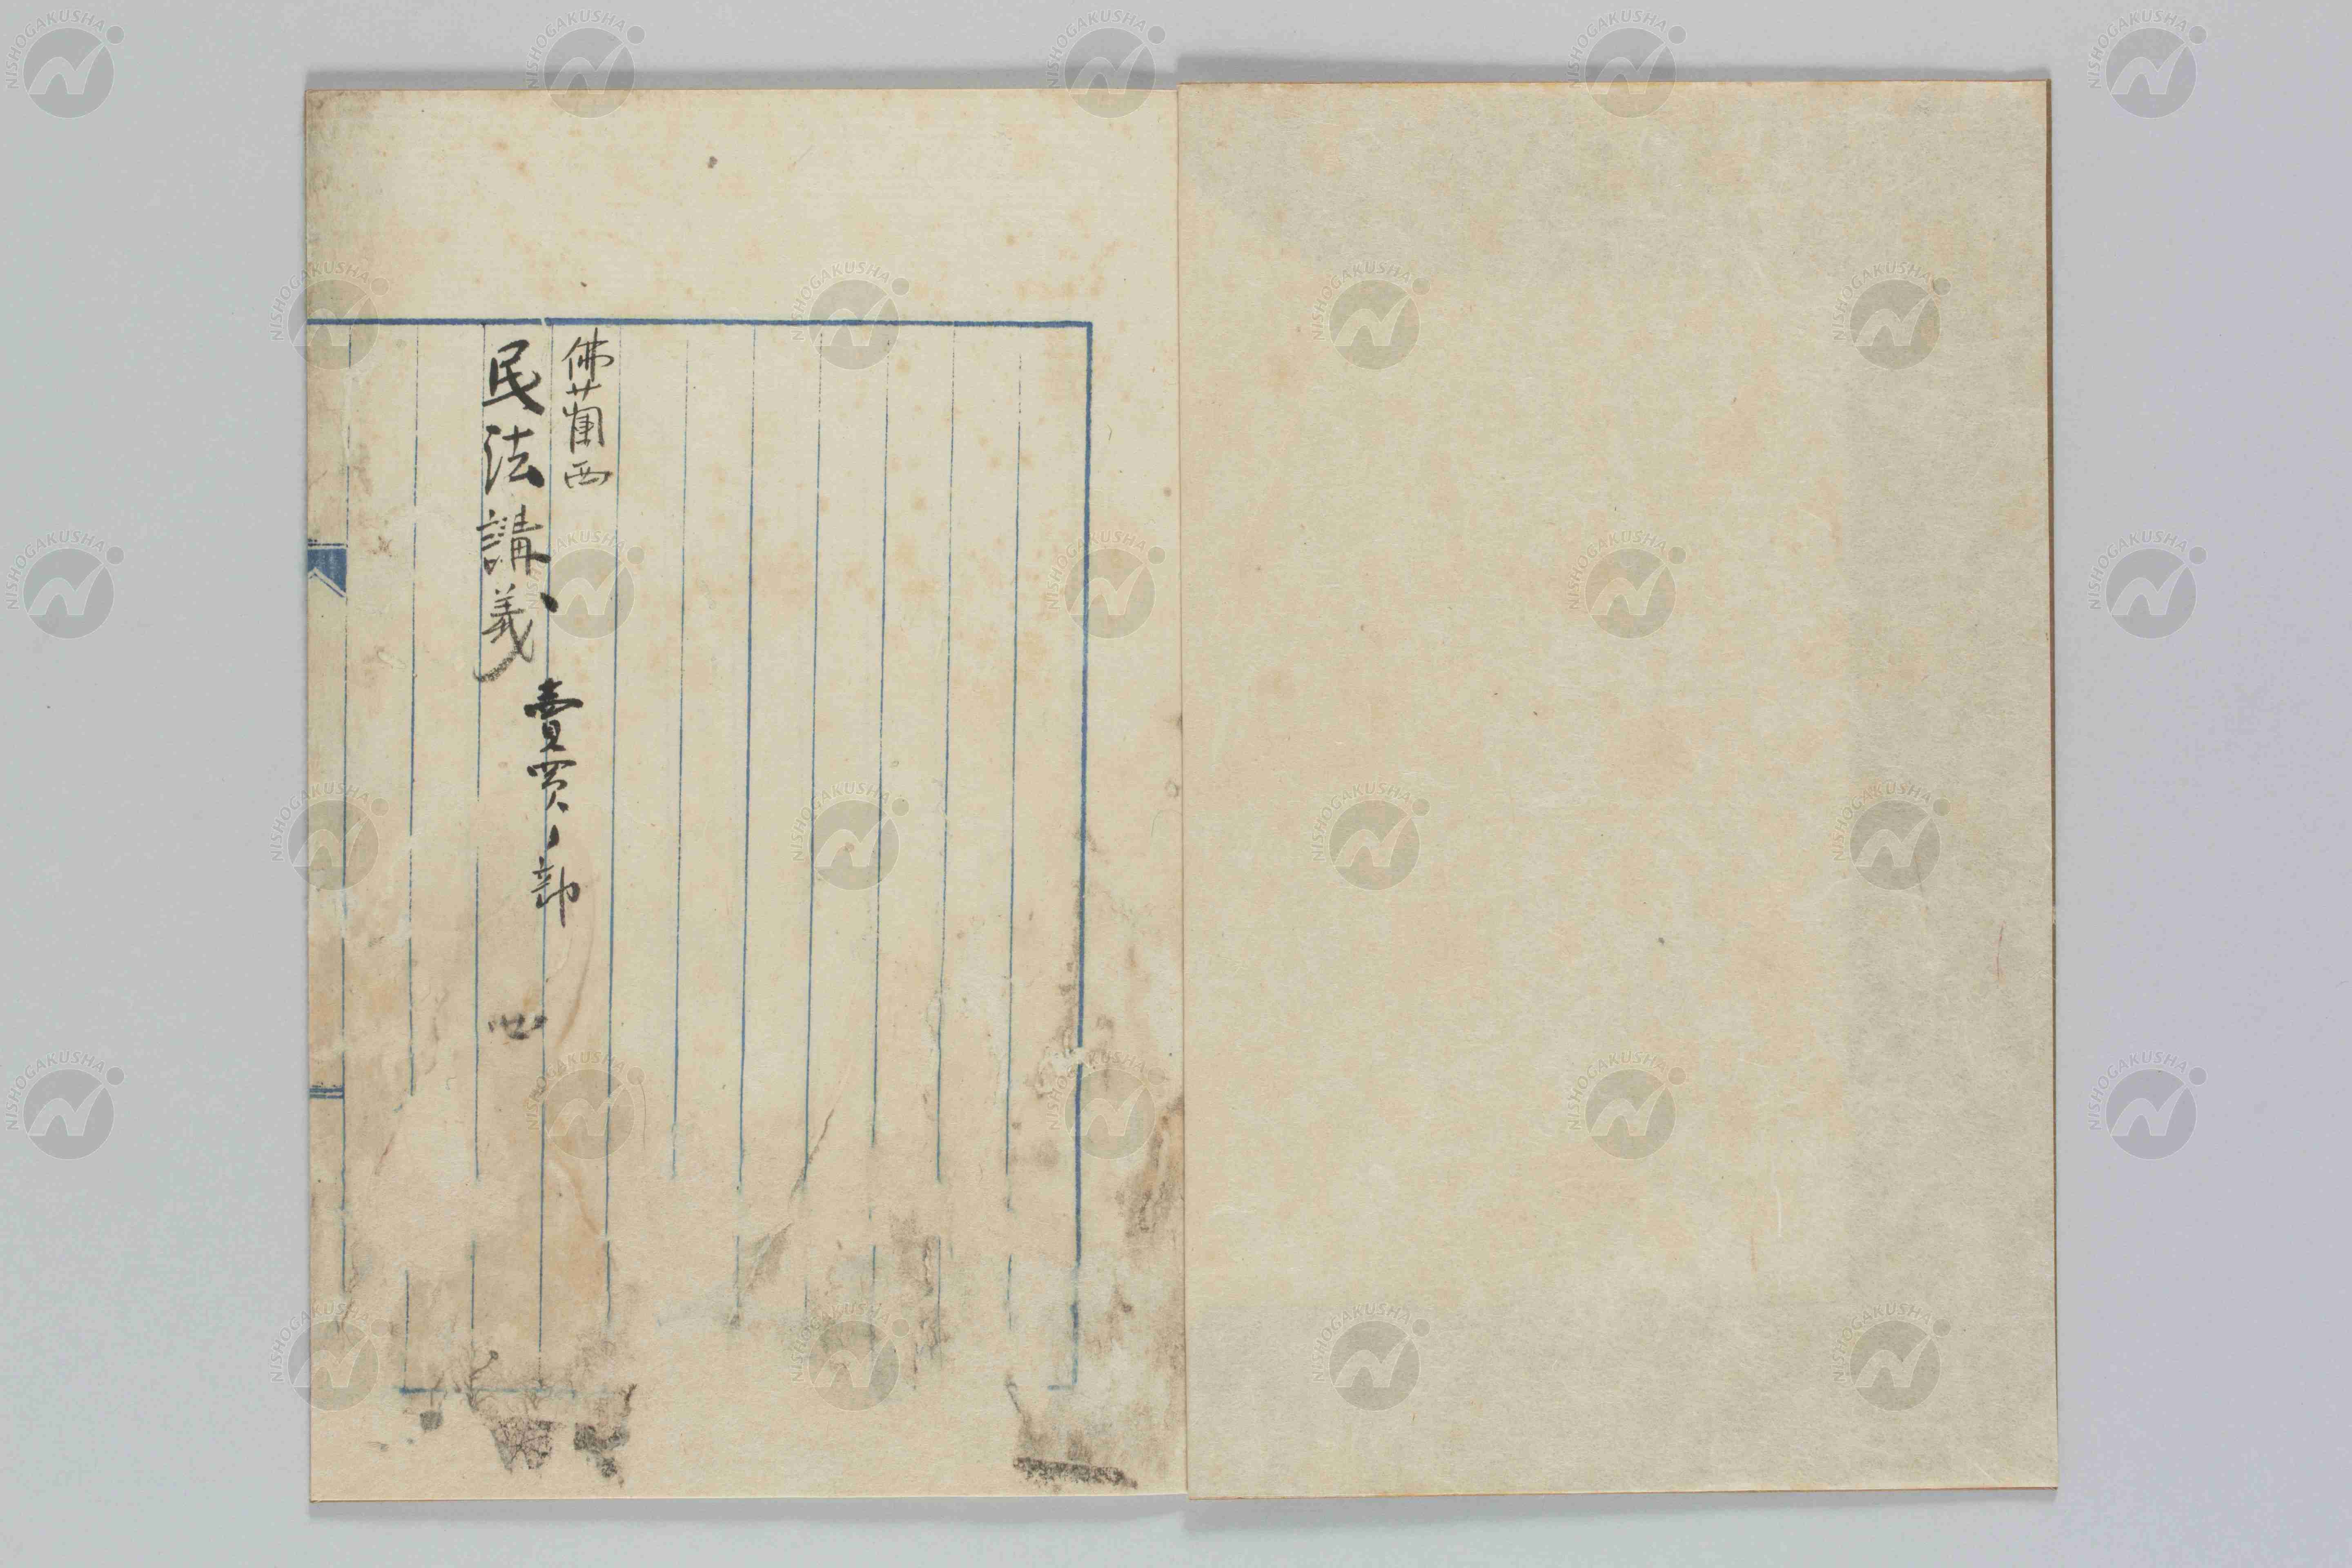 佛蘭西
民法講義
賣買ノ部
NISHOGAKUSHA